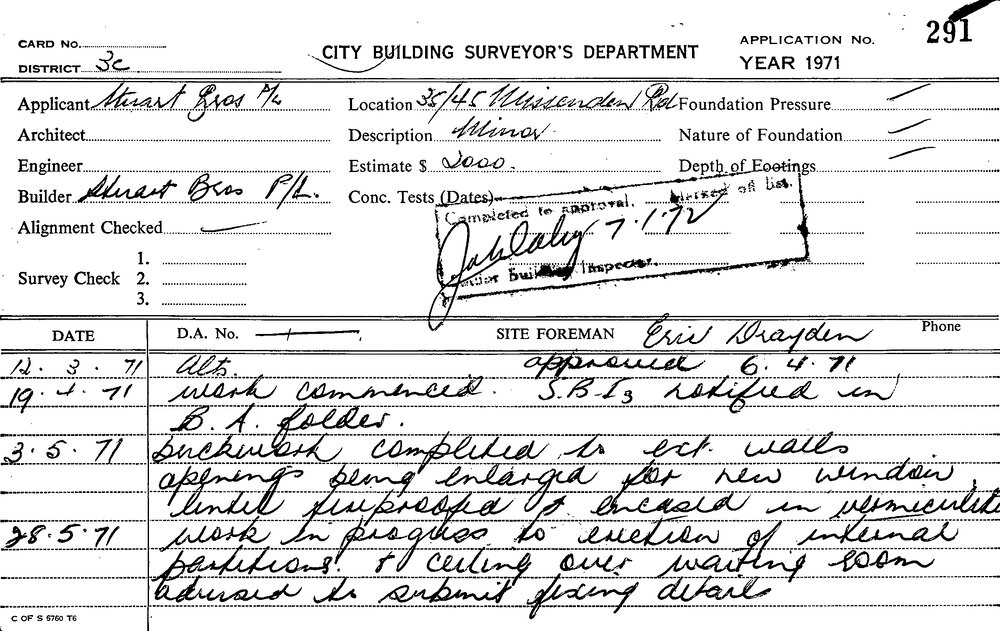 CARD No.
CITY BUILDING SURVEYOR'S DEPARTMENT
APPLICATION No. 291
DISTRICT 3c
YEAR 1971
Applicant Stuart Bros P/L
Location 35/45 Missenden Rd
Foundation Pressure
Architect
Description Minor
Nature of Foundation
Engineer
Estimate $ 2000.
Depth of Footings
Builder Stuart Bros P/L.
Conc. Tests (Dates)
Completed to approval. Marked off list.
7.1.72
Building Inspector.
Alignment Checked
Survey Check 1.
2.
3.
DATE D.A. No. SITE FOREMAN Eric Drayden Phone
12.3.71 Alts. approved 6.4.71
19.4.71 work commenced. S.B.I's notified in
B.A. folder.
3.5.71 brickwork completed to ext. walls
openings being enlarged for new window,
lintel fireproofed & encased in vermiculite
28.5.71 work in progress to erection of internal
partitions. & ceiling over waiting room
advised to submit fixing details
C OF S 6760 T6